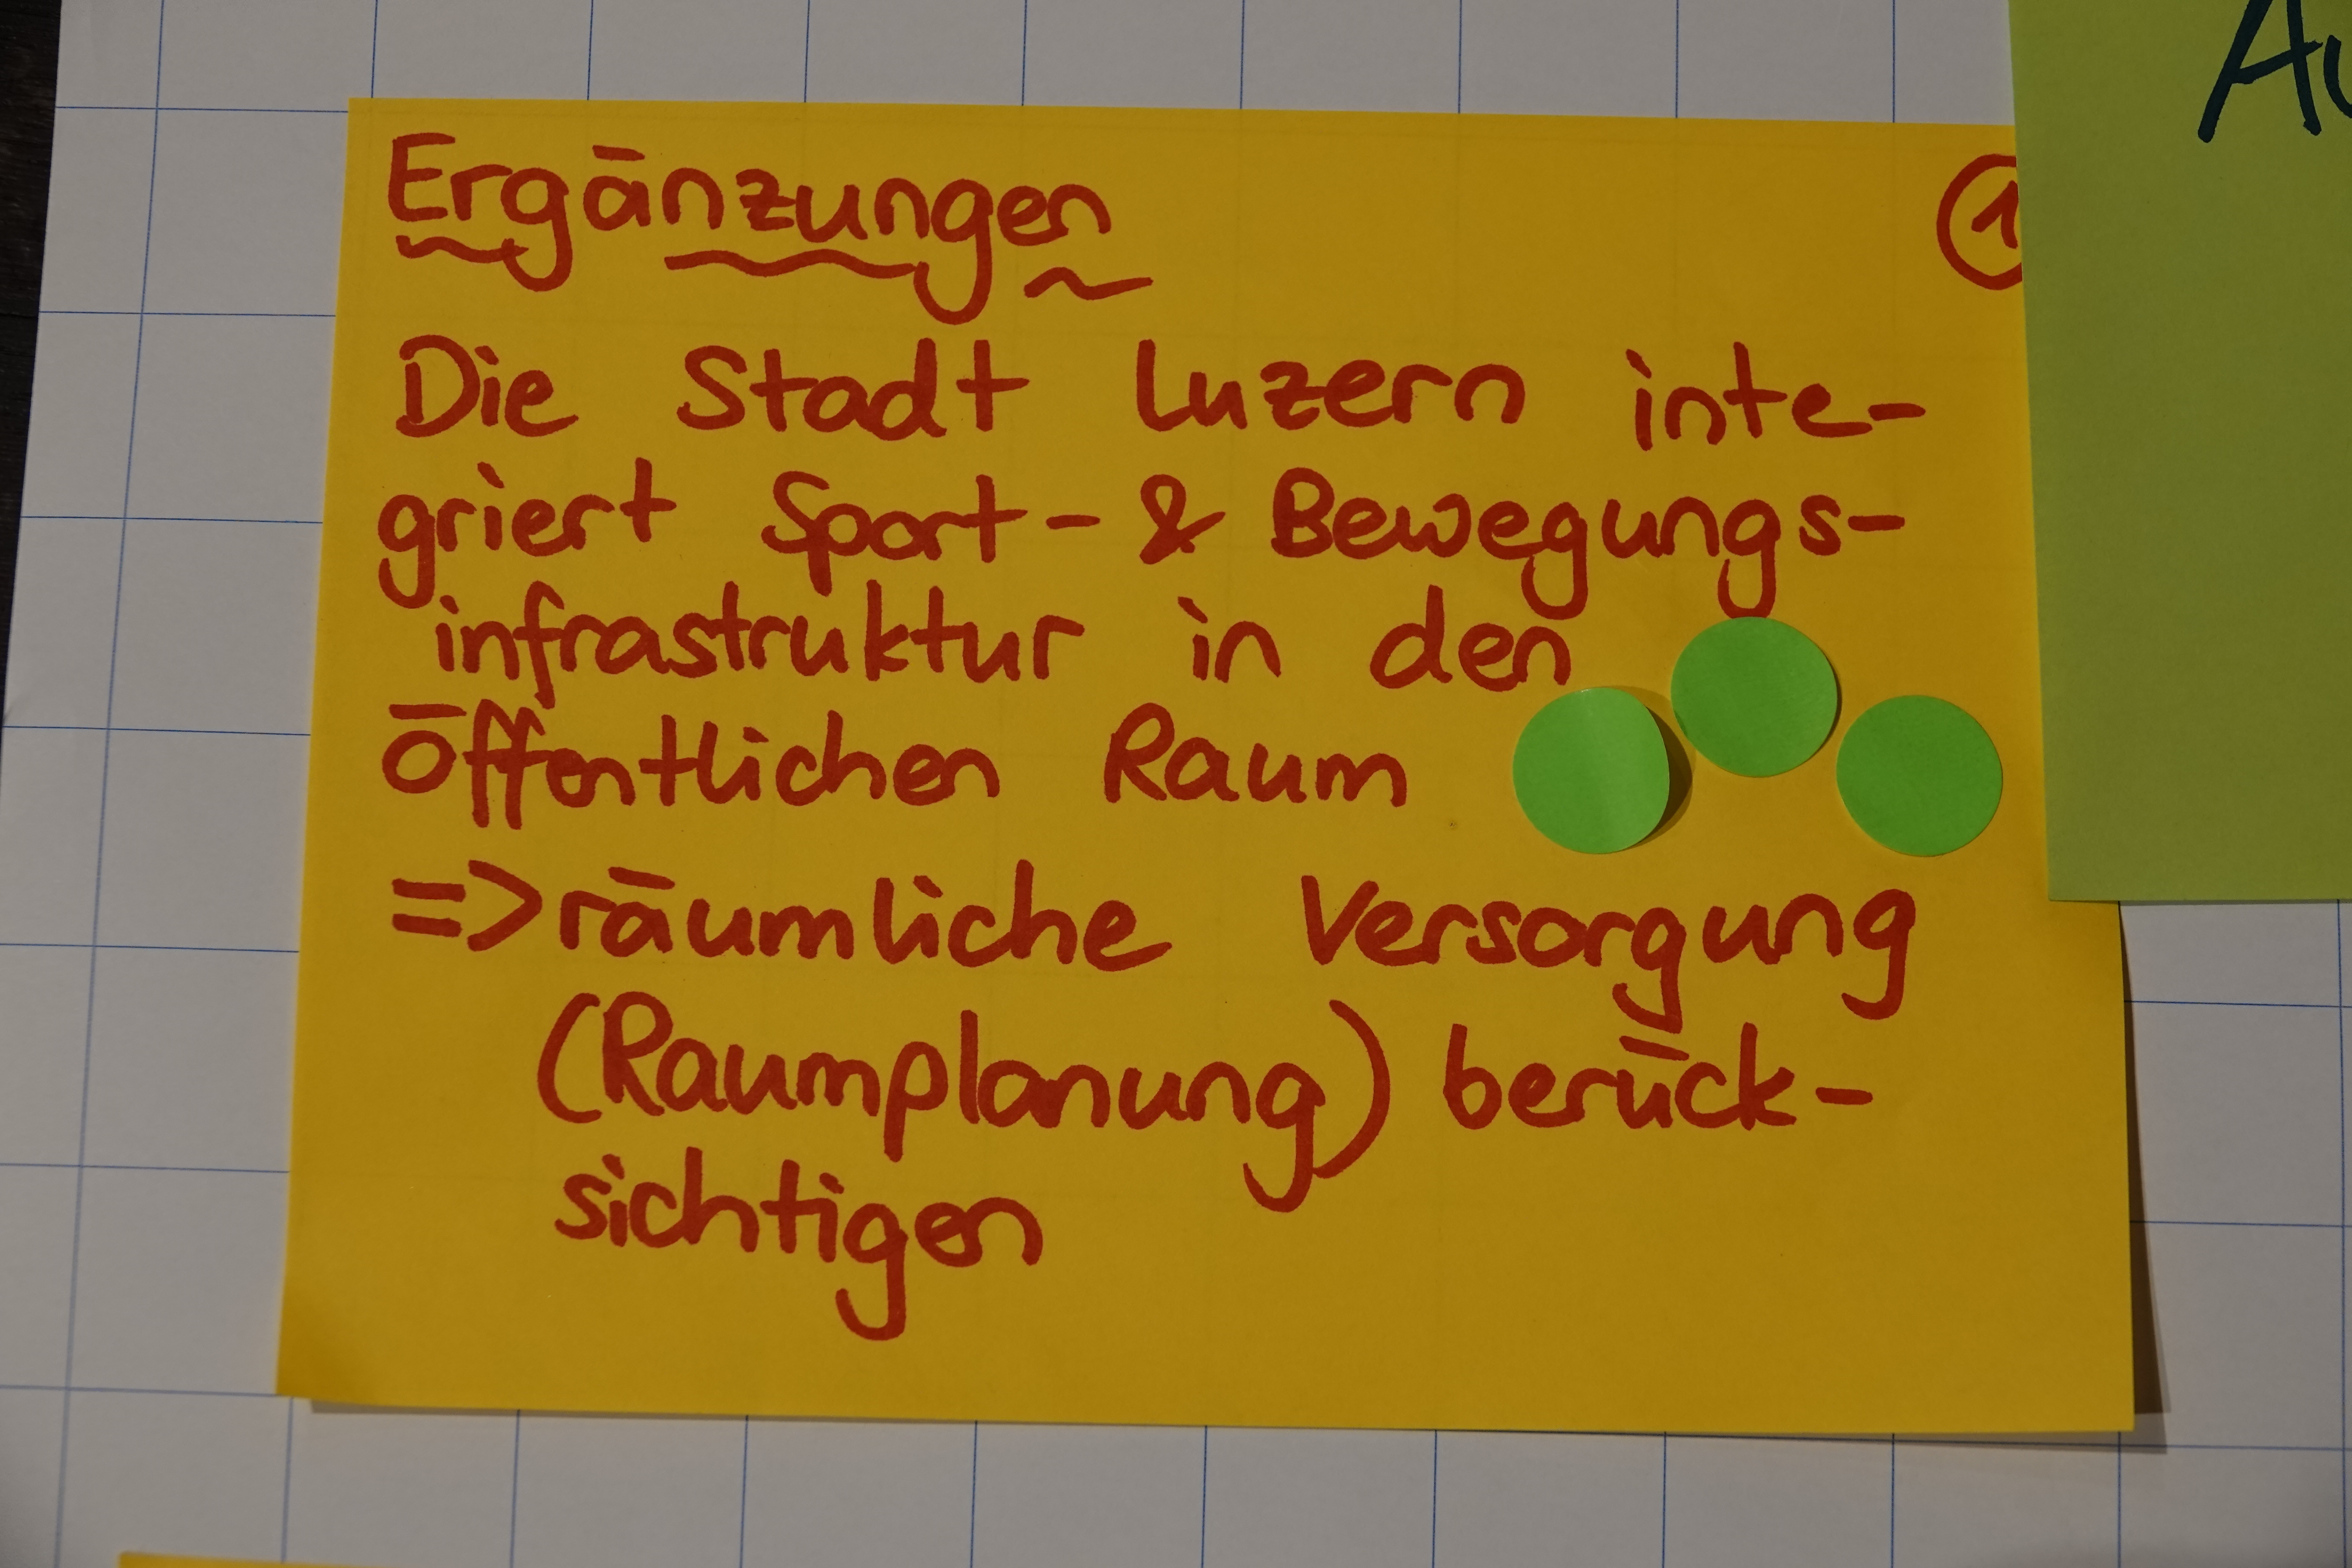 Ergänzungen 1
Die Stadt Luzern inte-
griert Sport- & Bewegungs-
infrastruktur in den
öffentlichen Raum
=> räumliche Versorgung
(Raumplanung) berück-
sichtigen